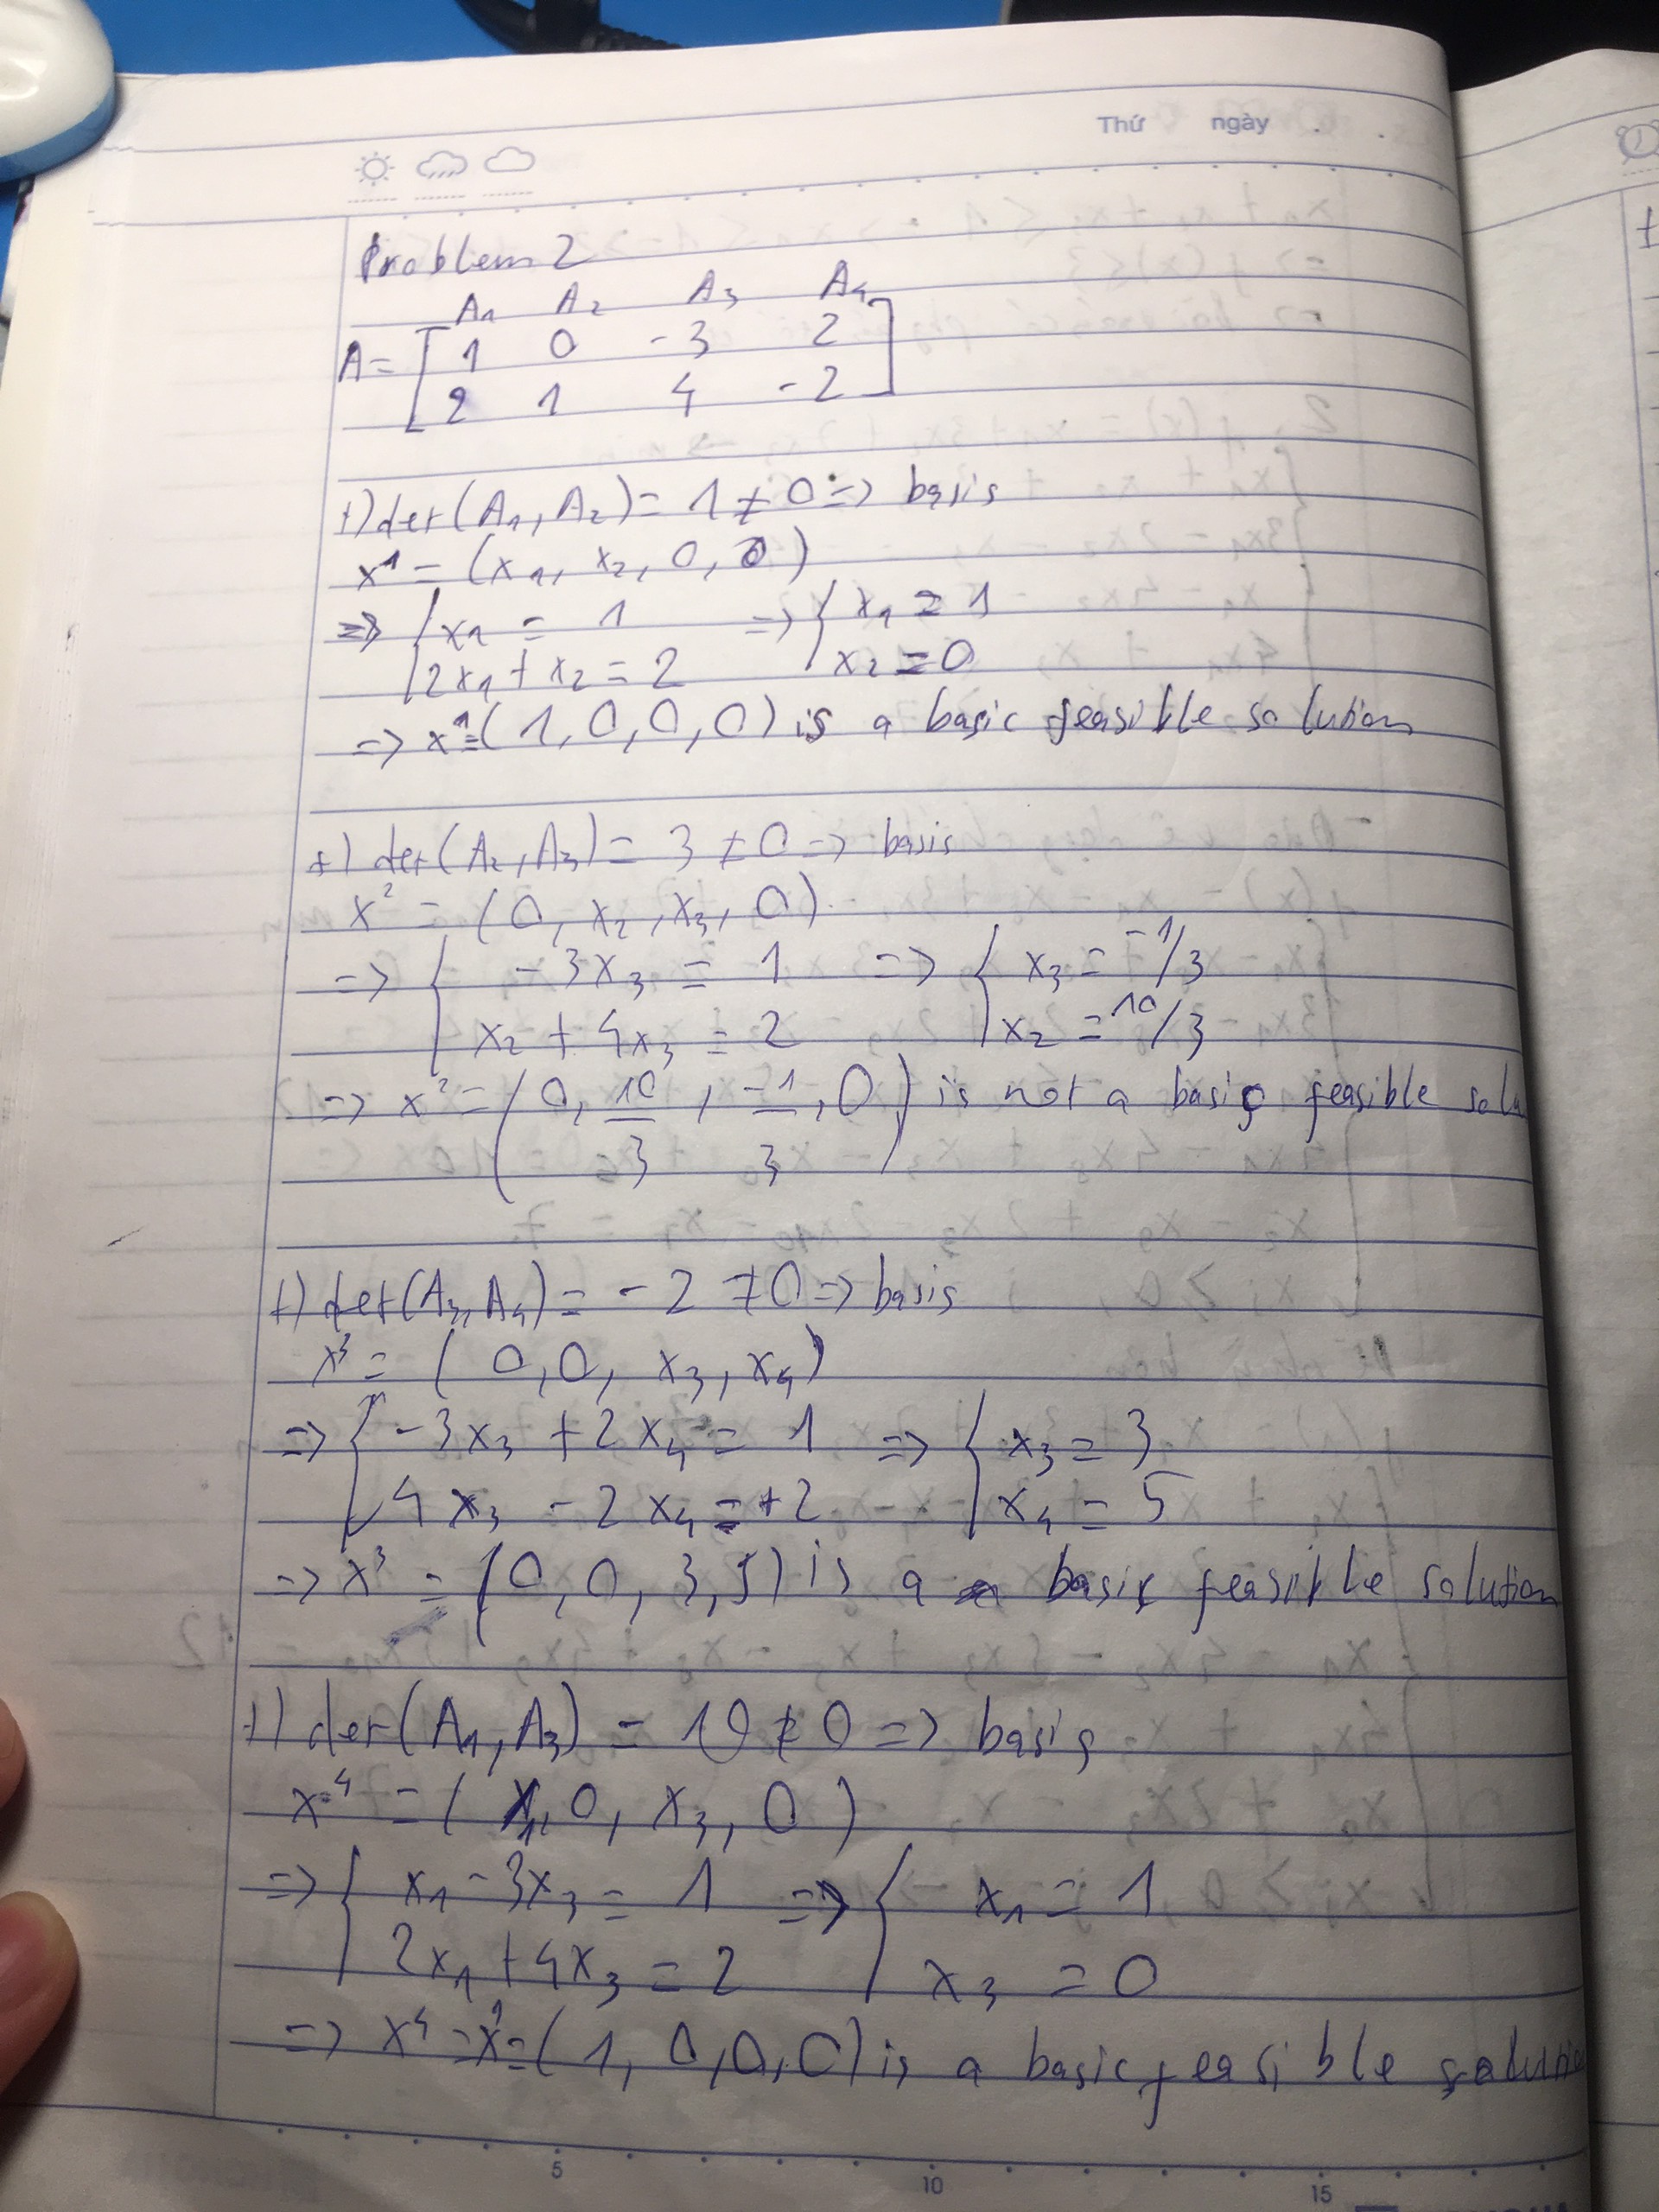 Thứ ngày . .
Problem 2
A₁ A₂ A₃ A₄
A = [ 1 0 -3 2
2 1 4 -2 ]
+) det(A₁, A₂) = 1 ≠ 0 => basis
x¹ = (x₁, x₂, 0, 0)
=> { x₁ = 1 => { x₁ = 1
2x₁ + x₂ = 2 x₂ = 0
=> x¹ = (1, 0, 0, 0) is a basic feasible solution
+) det(A₂, A₃) = 3 ≠ 0 => basis
x² = (0, x₂, x₃, 0)
=> { -3x₃ = 1 => { x₃ = -1/3
x₂ + 4x₃ = 2 x₂ = 10/3
=> x² = (0, 10/3, -1/3, 0) is not a basic feasible solu
+) det(A₃, A₄) = -2 ≠ 0 => basis
x³ = (0, 0, x₃, x₄)
=> { -3x₃ + 2x₄ = 1 => { x₃ = 3
4x₃ - 2x₄ = +2 x₄ = 5
=> x³ = (0, 0, 3, 5) is a basic feasible solution
+) det(A₁, A₃) = 10 ≠ 0 => basis
x⁴ = (x₁, 0, x₃, 0)
=> { x₁ - 3x₃ = 1 => { x₁ = 1
2x₁ + 4x₃ = 2 x₃ = 0
=> x⁴ = x¹ = (1, 0, 0, 0) is a basic feasible solution
5 10 15